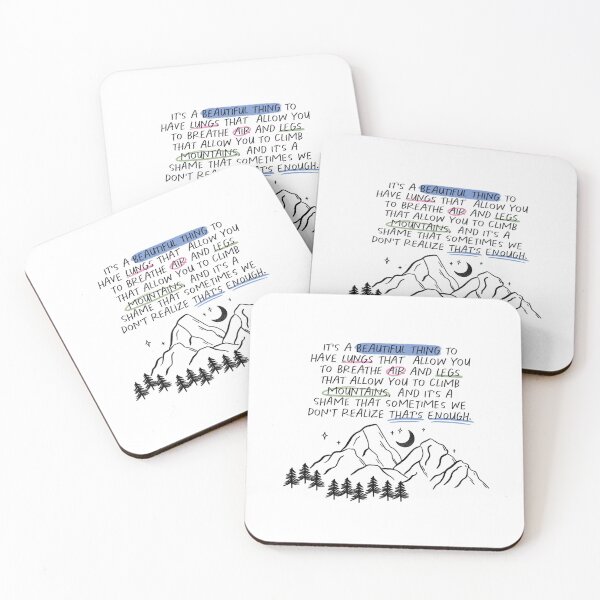 IT'S A BEAUTIFUL THING TO
HAVE LUNGS THAT ALLOW YOU
TO BREATHE AIR AND LEGS
THAT ALLOW YOU TO CLIMB
MOUNTAINS, AND IT'S A
SHAME THAT SOMETIMES WE
DON'T ENOUGH.
IT'S A BEAUTIFUL THING TO
HAVE LUNGS THAT ALLOW YOU
TO BREATHE AIR AND LEGS
THAT ALLOW YOU TO CLIMB
MOUNTAINS, AND IT'S A
SHAME THAT SOMETIMES WE
DON'T REALIZE THAT'S ENOUGH.
IT'S A BEAUTIFUL THING TO
HAVE LUNGS THAT ALLOW YOU
TO BREATHE AIR AND LEGS
THAT ALLOW YOU TO CLIMB
MOUNTAINS, AND IT'S A
SHAME THAT SOMETIMES WE
DON'T REALIZE THAT'S ENOUGH.
IT'S A BEAUTIFUL THING TO
HAVE LUNGS THAT ALLOW YOU
TO BREATHE AIR AND LEGS
THAT ALLOW YOU TO CLIMB
MOUNTAINS, AND IT'S A
SHAME THAT SOMETIMES WE
DON'T REALIZE THAT'S ENOUGH.